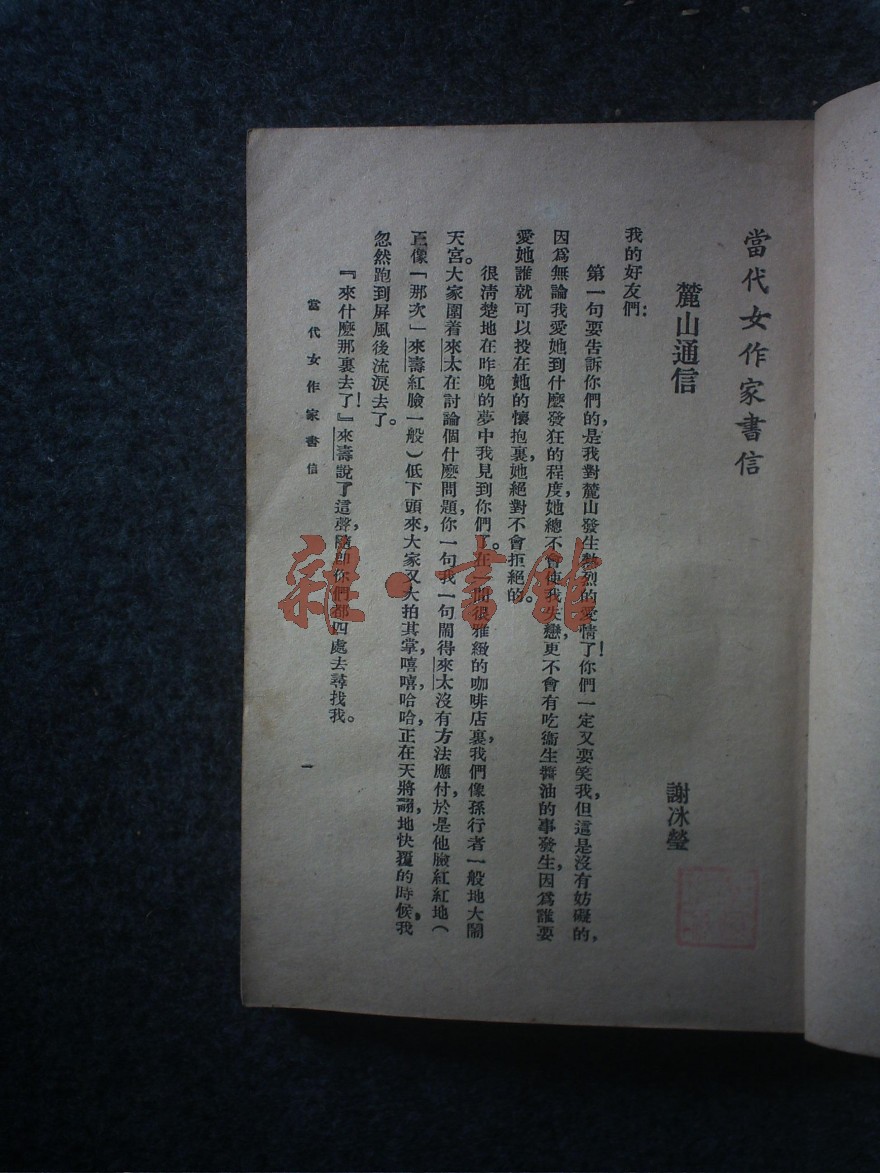 當代女作家書信
麓山通信
謝冰瑩
我的好友們：
第一句要告訴你們的，是我對麓山發生熱烈的愛情了！你們一定又要笑我，但這是沒有妨礙的，
因爲無論我愛她到什麼發狂的程度，她總不會使我失戀，更不會有吃衞生醬油的事發生，因爲誰要
愛她誰就可以投在她的懷抱裏，她絕對不會拒絕的。
很清楚地在昨晚的夢中我見到你們了。在一間很雅緻的咖啡店裏，我們像孫行者一般地大鬧
天宮。大家圍着來太在討論個什麼問題，你一句我一句鬧得來太沒有方法應付，於是他臉紅紅地（
正像「那次」來壽紅臉一般）低下頭來，大家又大拍其掌，嘻嘻，哈哈，正在天將翻，地快覆的時候，我
忽然跑到屏風後流淚去了。
『來什麼那裏去了！』來壽說了這聲，隨即你們都四處去尋找我。
當代女作家書信
一
雜·書館